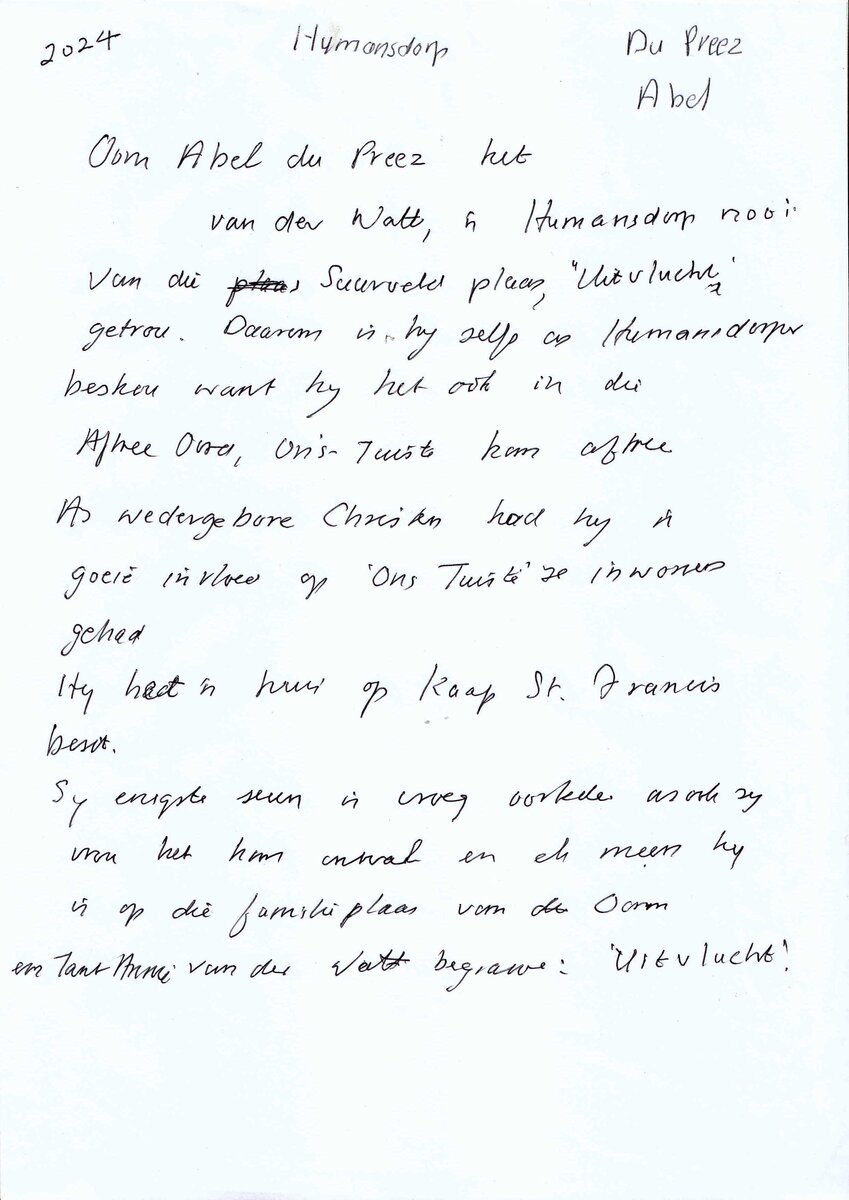 2024 Humansdorp Du Preez
Abel
Oom Abel du Preez het
van der Watt, 'n Humansdorp nooi
van die Suurveld plaas, "Uitvlucht"
getrou. Daarom is hy self as Humansdorper
beskou want hy het ook in die
Aftree Oord, Ons-Tuiste kom aftree
As wedergebore Christen had hy 'n
goeie invloed op 'Ons Tuiste' se inwoners
gehad
Hy het 'n huis op Kaap St. Francis
besit.
Sy enigste seun is vroeg oorlede asook sy
vrou het hom ontval en ek meen hy
is op die familieplaas van Oom
en Tant Annie van der Watt begrawe: 'Uitvlucht'